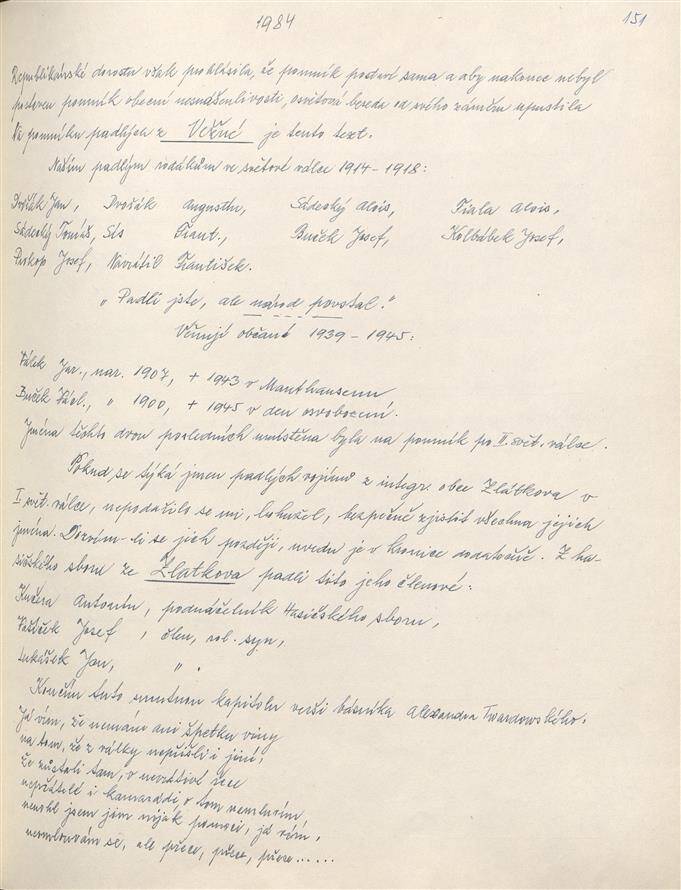 1984
151
Republikánské dorostu však prohlásila, že pomník postaví sama a aby nakonec nebyl
postaven pomník obecní nesnášenlivosti, osvětová beseda od svého záměru upustila
Na pomníku padlých z Věžné je tento text.
Našim padlým rodákům ve světové válce 1914-1918:
Dvořák Jan, Dvořák Augustin, Sádecký Alois, Fiala Alois,
Sádecký Tomáš, Sís Frant., Buček Josef, Kolbábek Josef,
Prokop Josef, Navrátil František.
„Padli jste, ale národ povstal."
Věrnější občané 1939-1945:
Jar., nar. 1907, + 1943 v Mauthausenu
Buček " 1900, + 1945 v den osvobození.
Jména těchto dvou posledních umístěna byla na pomník po II. svět. válce.
Pokud se týká jmen padlých vojínů z integr. obce Zlátkova v
I. svět. válce, nepodařilo se mi, bohužel, bezpečně zjistit všechna jejich
jména. Dozvím-li se jich později, uvedu je v kronice dodatečně. Z ha-
sičského sboru ze Zlátkova padli tito jeho členové:
Kučera Antonín, podnáčelník Hasičského sboru,
Josef, člen, rol. syn,
Lukášek Jan, " .
Končím tuto smutnou kapitolu verši básníka Alexandra Twardowského.
Já vím, že nemám ani špetku viny
na tom, že z války nepřišli i jiní,
že zůstali tam, v
nepřátelé i kamarádi, o tom nemluvím,
nemohl jsem jim nijak pomoci, já vím,
neomlouvám se, ale přece, přece, přece......